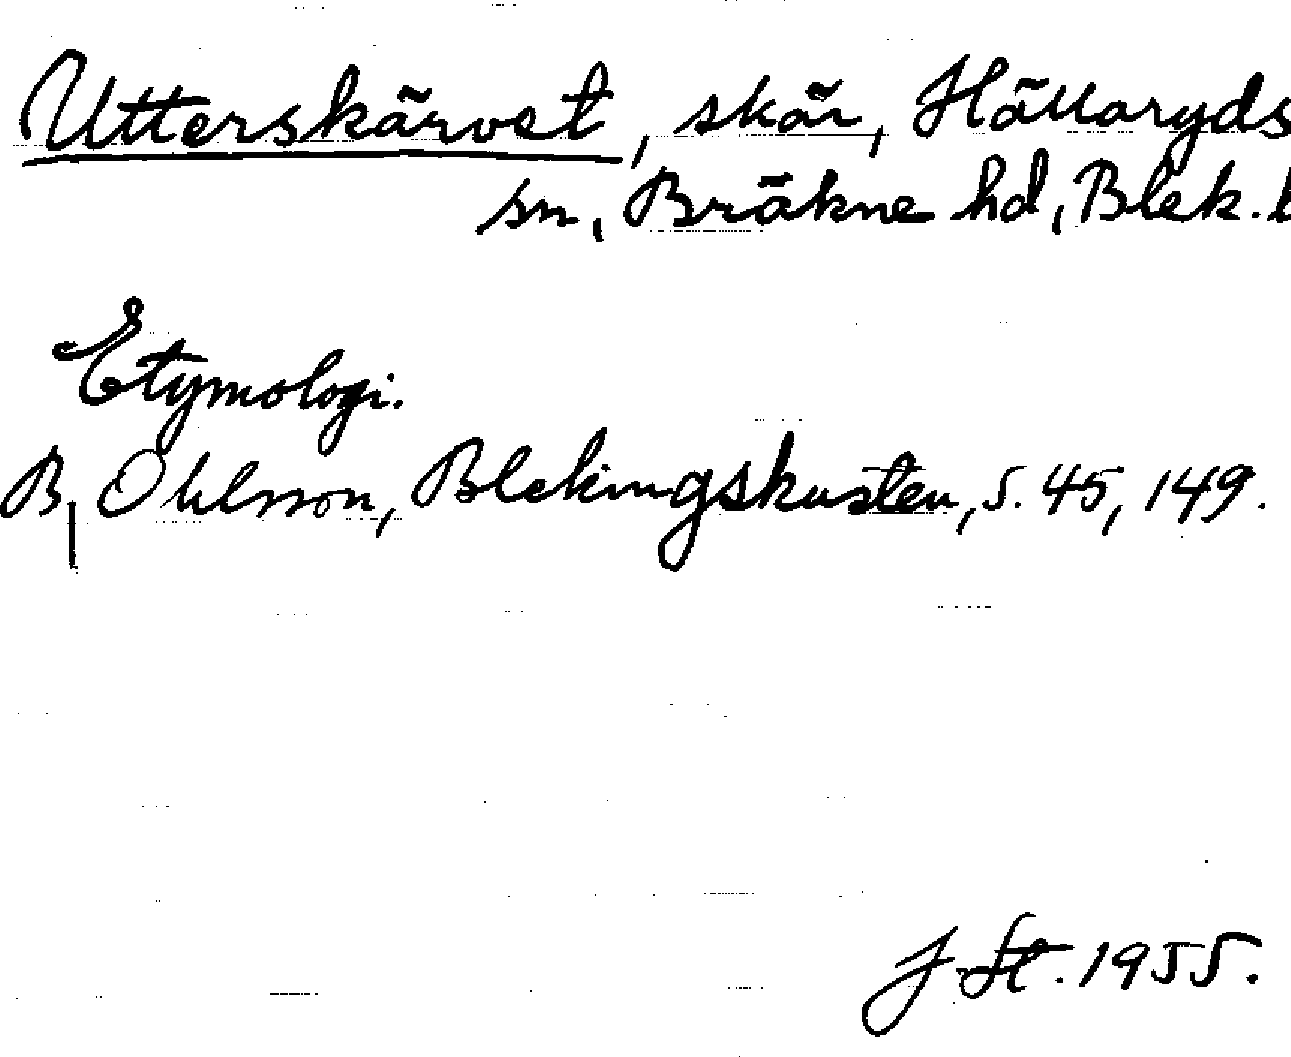 Utterskärvet, skär, Hällaryds
sn, Bräkne hd, Blek. l
Etymologi.
B. Ohlsson, Blekingskusten, s. 45, 149.
J St. 1955.